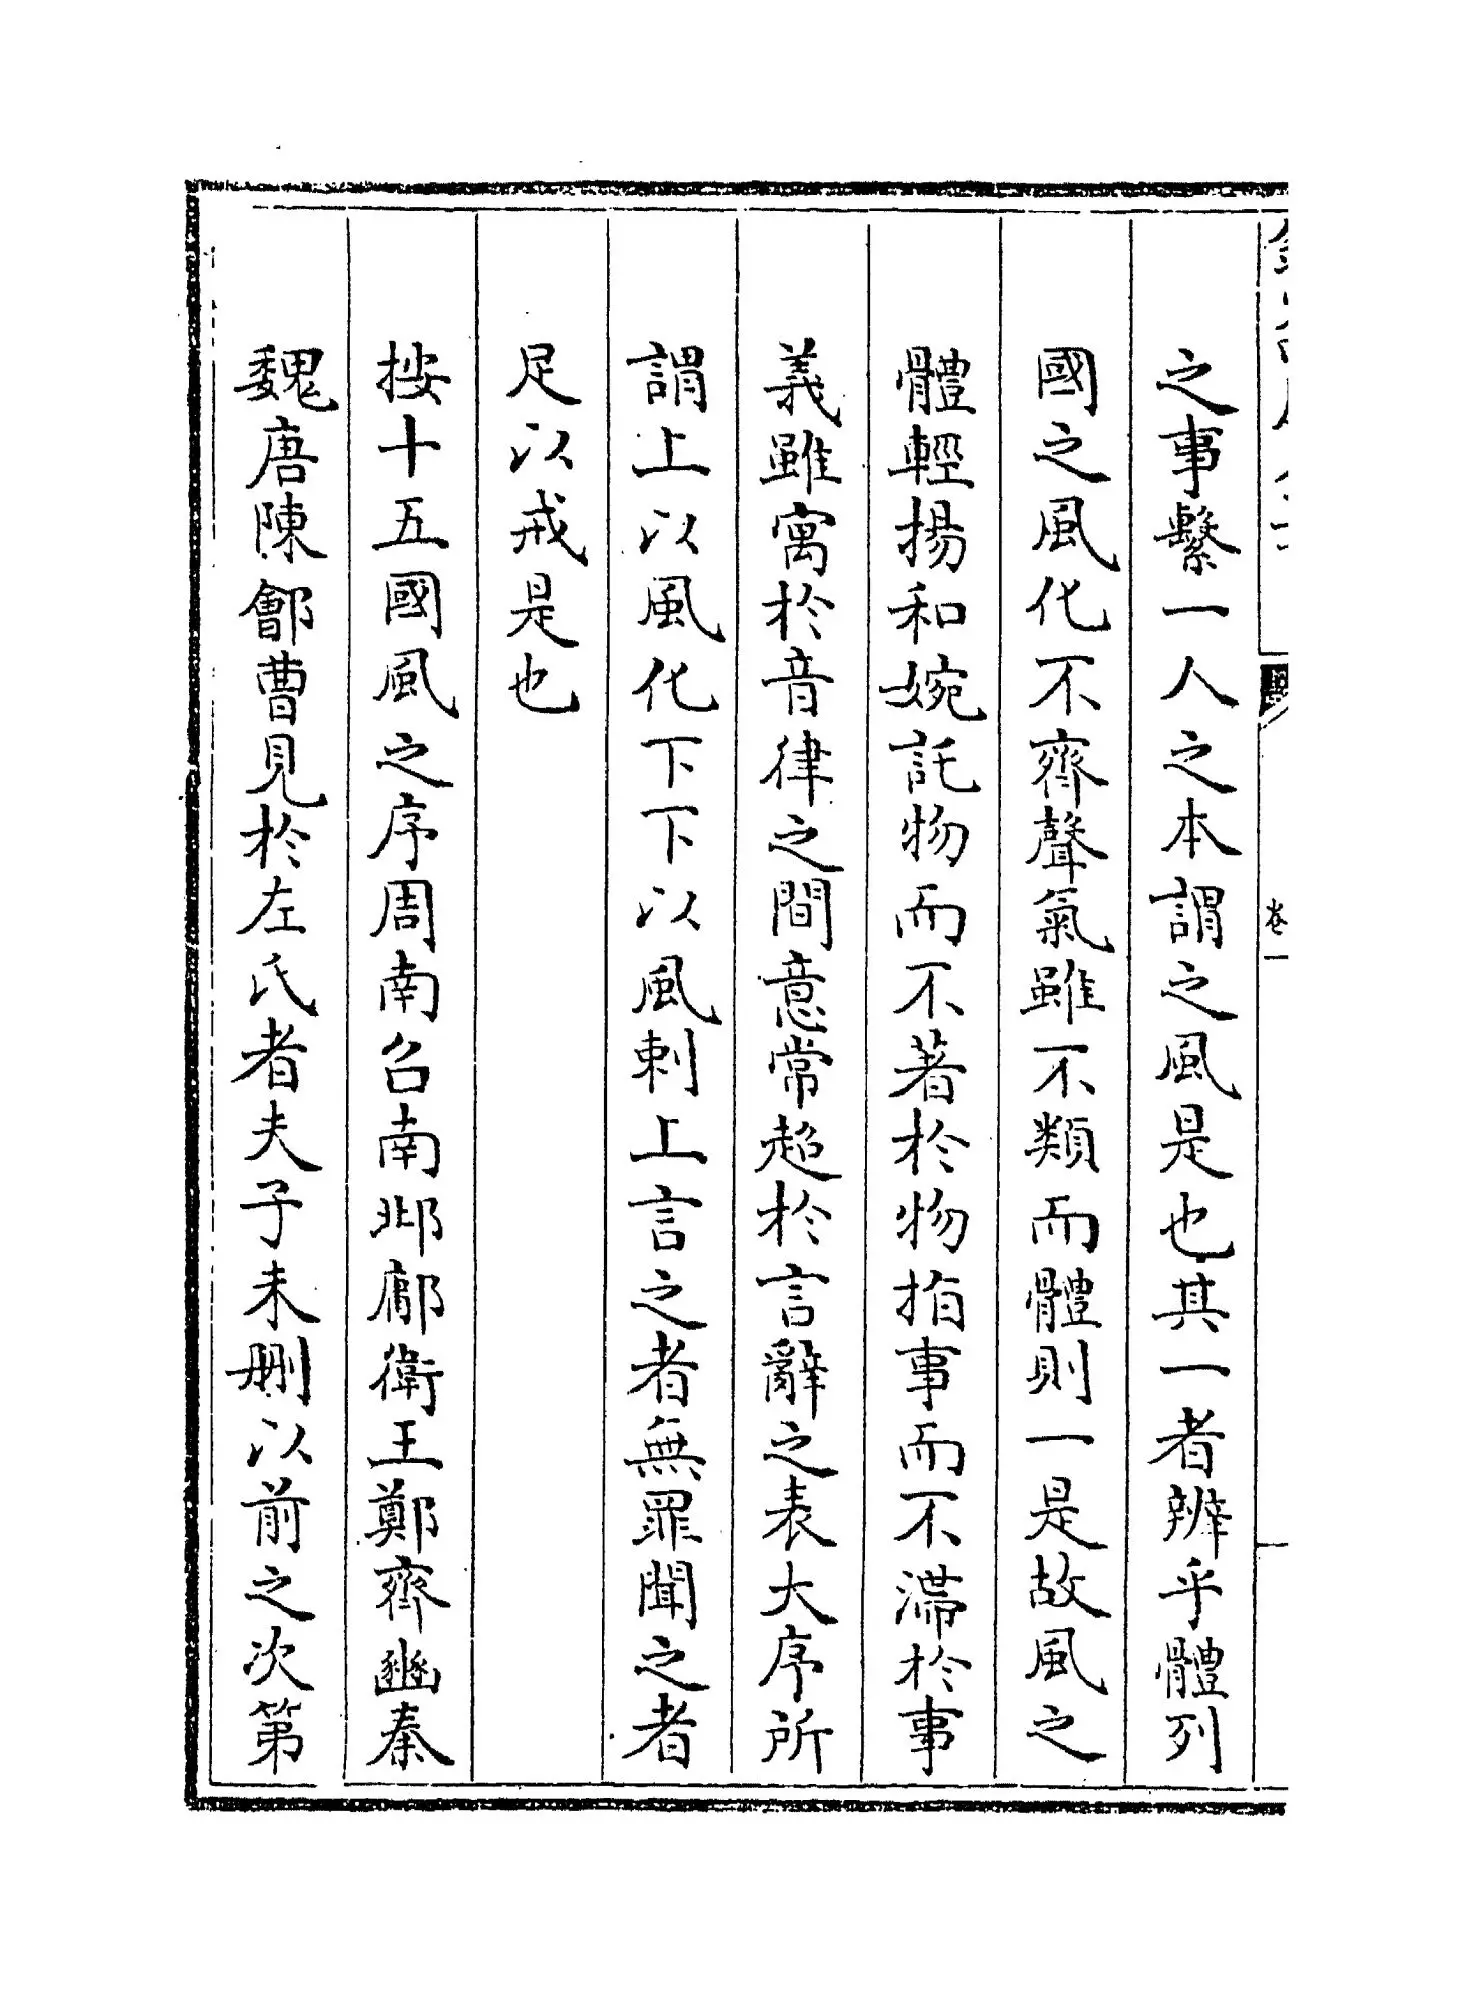 之事繫一人之本謂之風是也其一者辨乎體列
國之風化不齊聲氣雖不類而體則一是故風之
體輕揚和婉託物而不著於物指事而不滯於事
義雖寓於音律之間意常超於言辭之表大序所
謂上以風化下下以風刺上言之者無罪聞之者
足以戒是也
按十五國風之序周南召南邶鄘衛王鄭齊豳秦
魏唐陳鄶曹見於左氏者夫子未刪以前之次第
卷一